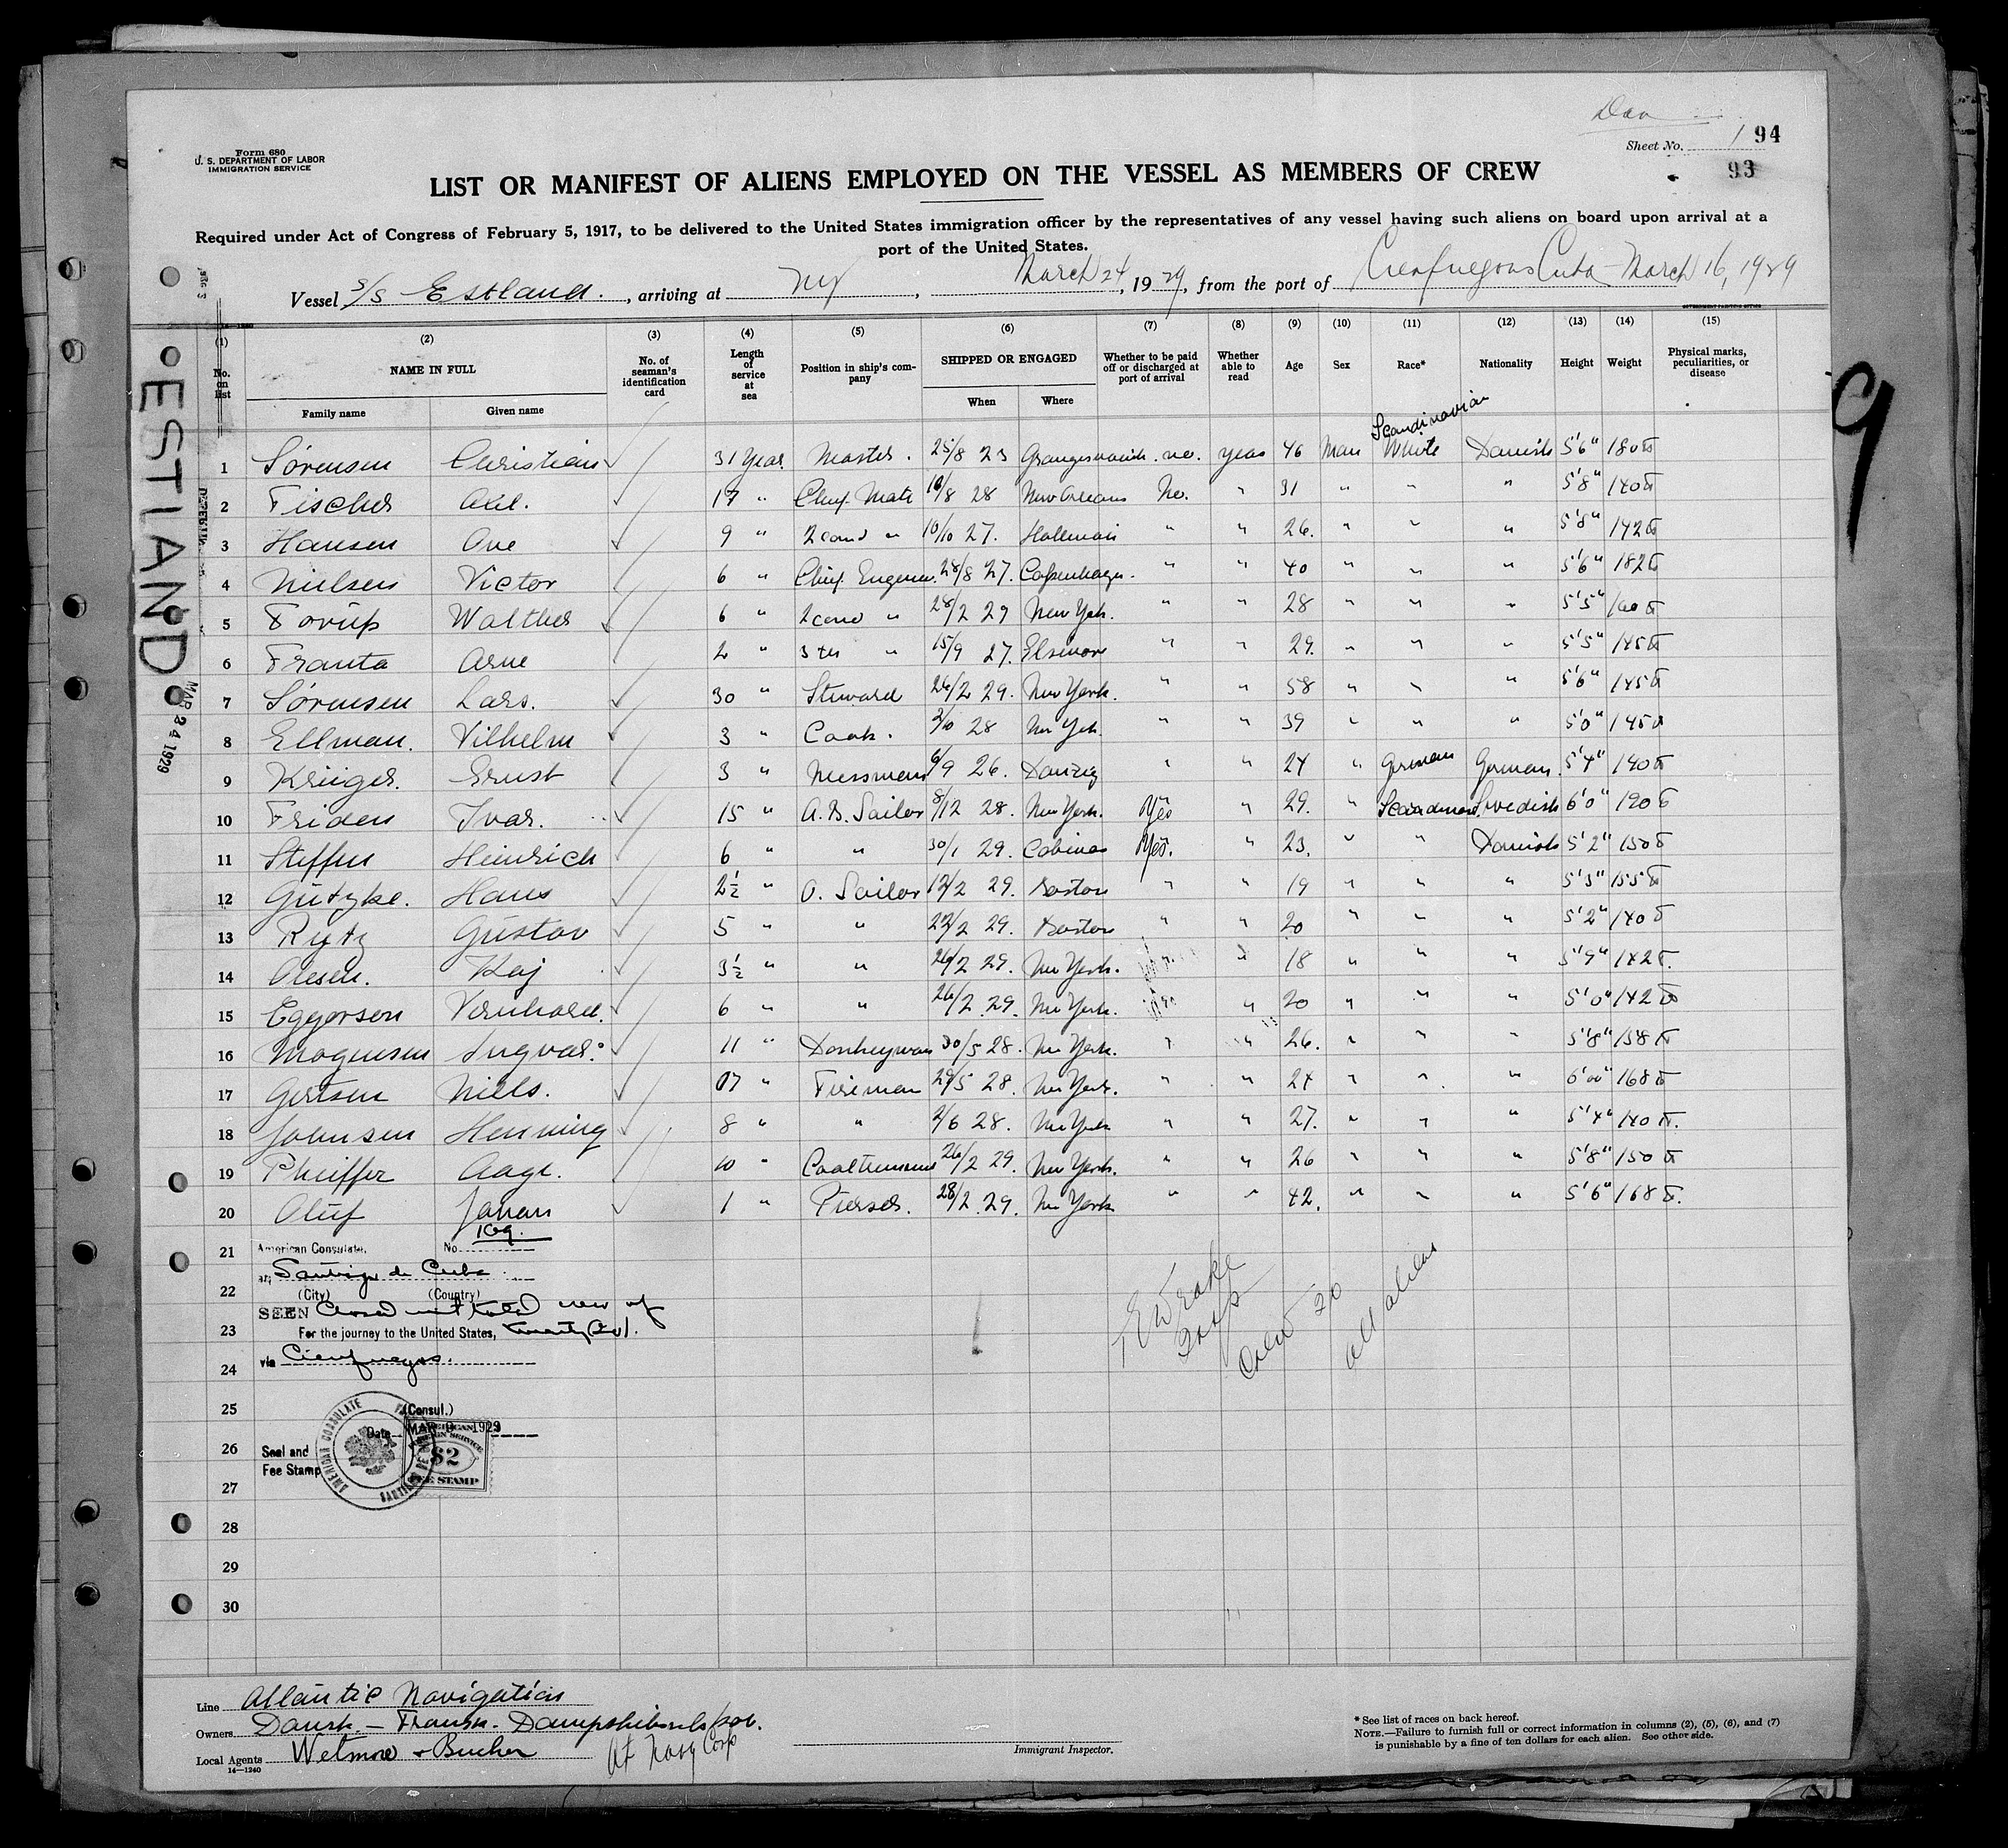 Form 680
U. S. DEPARTMENT OF LABOR
IMMIGRATION SERVICE
Sheet No. 1 94
93
LIST OR MANIFEST OF ALIENS EMPLOYED ON THE VESSEL AS MEMBERS OF CREW
Required under Act of Congress of February 5, 1917, to be delivered to the United States immigration officer by the representatives of any vessel having such aliens on board upon arrival at a
port of the United States.
Vessel S/S Estland. , arriving at NY , March 24, 1929, from the port of Cienfuegos Cuba - March 16, 1929
ESTLAND
MAR 24 1929
9
(1) (2) (3) (4) (5) (6) (7) (8) (9) (10) (11) (12) (13) (14) (15)
No. on list NAME IN FULL No. of seaman's identification card Length of service at sea Position in ship's company SHIPPED OR ENGAGED Whether to be paid off or discharged at port of arrival Whether able to read Age Sex Race* Nationality Height Weight Physical marks, peculiarities, or disease
Family name Given name When Where
Scandinavian
1 Sørensen Christian 31 Year Master. 25/8 23 no. yeas 46 Man White Danish 5'6" 180
2 Fischer 17 " Chief Mate /8 28 New Orleans No. " 31 " " " 5'8" 140
3 Hansen Ove 9 " 2cond " 10/10 27. " " 26. " " " 5'8" 142
4 Nielsen Victor 6 " Chief Engineer. 28/8 27. Copenhagen. " " 40 " " " 5'6" 182
5 Torup Walther 6 " 2cond " 28/2 29 New York. " " 28 " " " 5'5" 160
6 Franta Arne 2 " 3 " 15/9 27. Elsinore " " 29. " " " 5'5" 145
7 Sørensen Lars. 30 " Steward 26/2 29. New York. " " 58 " " " 5'6" 145
8 Ellman. Vilhelm 3 " Cook. 2/10 28 New York. " " 39 " " " 5'0" 145
9 Krüger. Ernst 3 " Messman 6/9 26. Danzig " " 24 " German German. 5'4" 140
10 Friden Ivar. 15 " A.B. Sailor 8/12 28. New York. Yes " 29. " Swedish 6'0" 190
11 Steffen Heinrich 6 " " 30/1 29. Yes. " 23. " " Danish 5'2" 150
12 Gützke. Hans 2½ " O. Sailor 12/2 29. Boston " " 19 " " " 5'3" 155
13 Rytz Gustav 5 " " 22/2 29. Boston " " 20 " " " 5'2" 140
14 Olesen. Kaj 3½ " " 26/2 29. New York. " 18 " " " 5'9" 142
15 Eggersen Vernhard. 6 " " 26/2 29. New York. " 20 " " " 5'0" 142
16 Mogensen Ingvar. 11 " Donkeyman 30/5 28. New York. " " 26. " " " 5'8" 158
17 Gertsen Niels. 07 " Fireman 29/5 28. New York. " " 24 " " " 6'00" 168
18 Johnsen Henning 8 " " 2/6 28. New York " " 27. " " " 5'4" 140
19 Pheiffer Aage. 10 " 26/2 29. New York. " " 26 " " " 5'8" 150
20 Oluf Johan 1 " 28/2 29. New York " " 42. " " " 5'6" 168
21 American Consulate, No. 109.
at Santiago de Cuba
22 (City) (Country)
SEEN Closed with total crew of
23 For the journey to the United States, twenty (20).
24 via Cienfuegos.
25 (Consul.)
Date MAR 1929
26 Seal and
Fee Stamp
AMERICAN CONSULATE
AMERICAN FOREIGN SERVICE
$2
FEE STAMP
27
28
29
30
Crew 20
all aliens
Line Atlantic Navigation
Owners Dansk - Fransk. Dampskibsselskab.
Local Agents Wetmore + Bucher At Navg Corp
14—1240
Immigrant Inspector.
*See list of races on back hereof.
NOTE.—Failure to furnish full or correct information in columns (2), (5), (6), and (7)
is punishable by a fine of ten dollars for each alien. See other side.